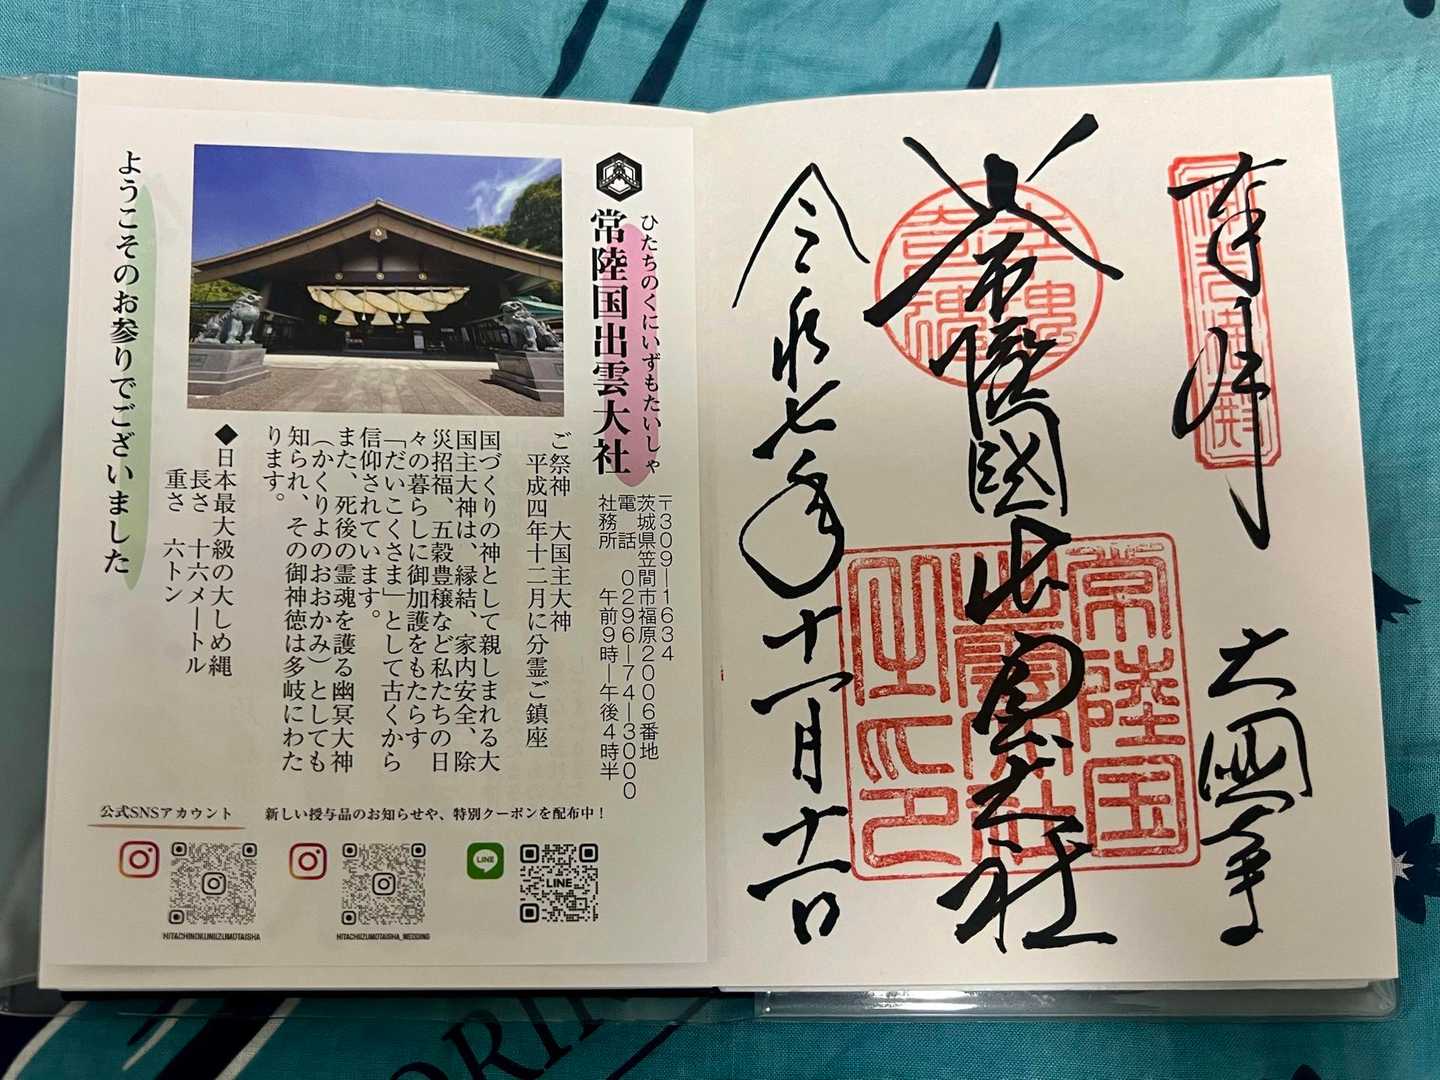 奉拝
大國主
常陸國出雲大社
令和七年十一月十一日
常陸国
出雲大社
之印
ひたちのくにいずもたいしゃ
常陸国出雲大社
〒309−1634
茨城県笠間市福原2006番地
電話 0296−74−3000
社務所 午前9時−午後4時半
ご祭神 大国主大神
平成四年十二月に分霊ご鎮座
国づくりの神として親しまれる大
国主大神は、縁結、家内安全、除
災招福、五穀豊穣など私たちの日
々の暮らしに御加護をもたらす
「だいこくさま」として古くから
信仰されています。
また、死後の霊魂を護る幽冥大神
（かくりよのおおかみ）としても
知られ、その御神徳は多岐にわた
ります。
◆日本最大級の大しめ縄
長さ 十六メートル
重さ 六トン
ようこそのお参りでございました
公式SNSアカウント
新しい授与品のお知らせや、特別クーポンを配布中！
HITACHINOKUNIIZUMOTAISHA
HITACHIIZUMOTAISHA_WEDDING
LINE
LINE